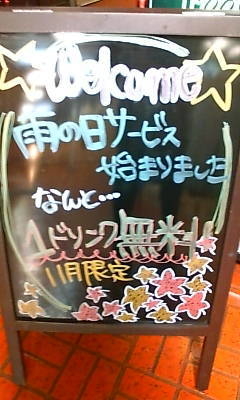 Welcome
雨の日サービス
始まりました
なんと…
1ドリンク無料!
11月限定